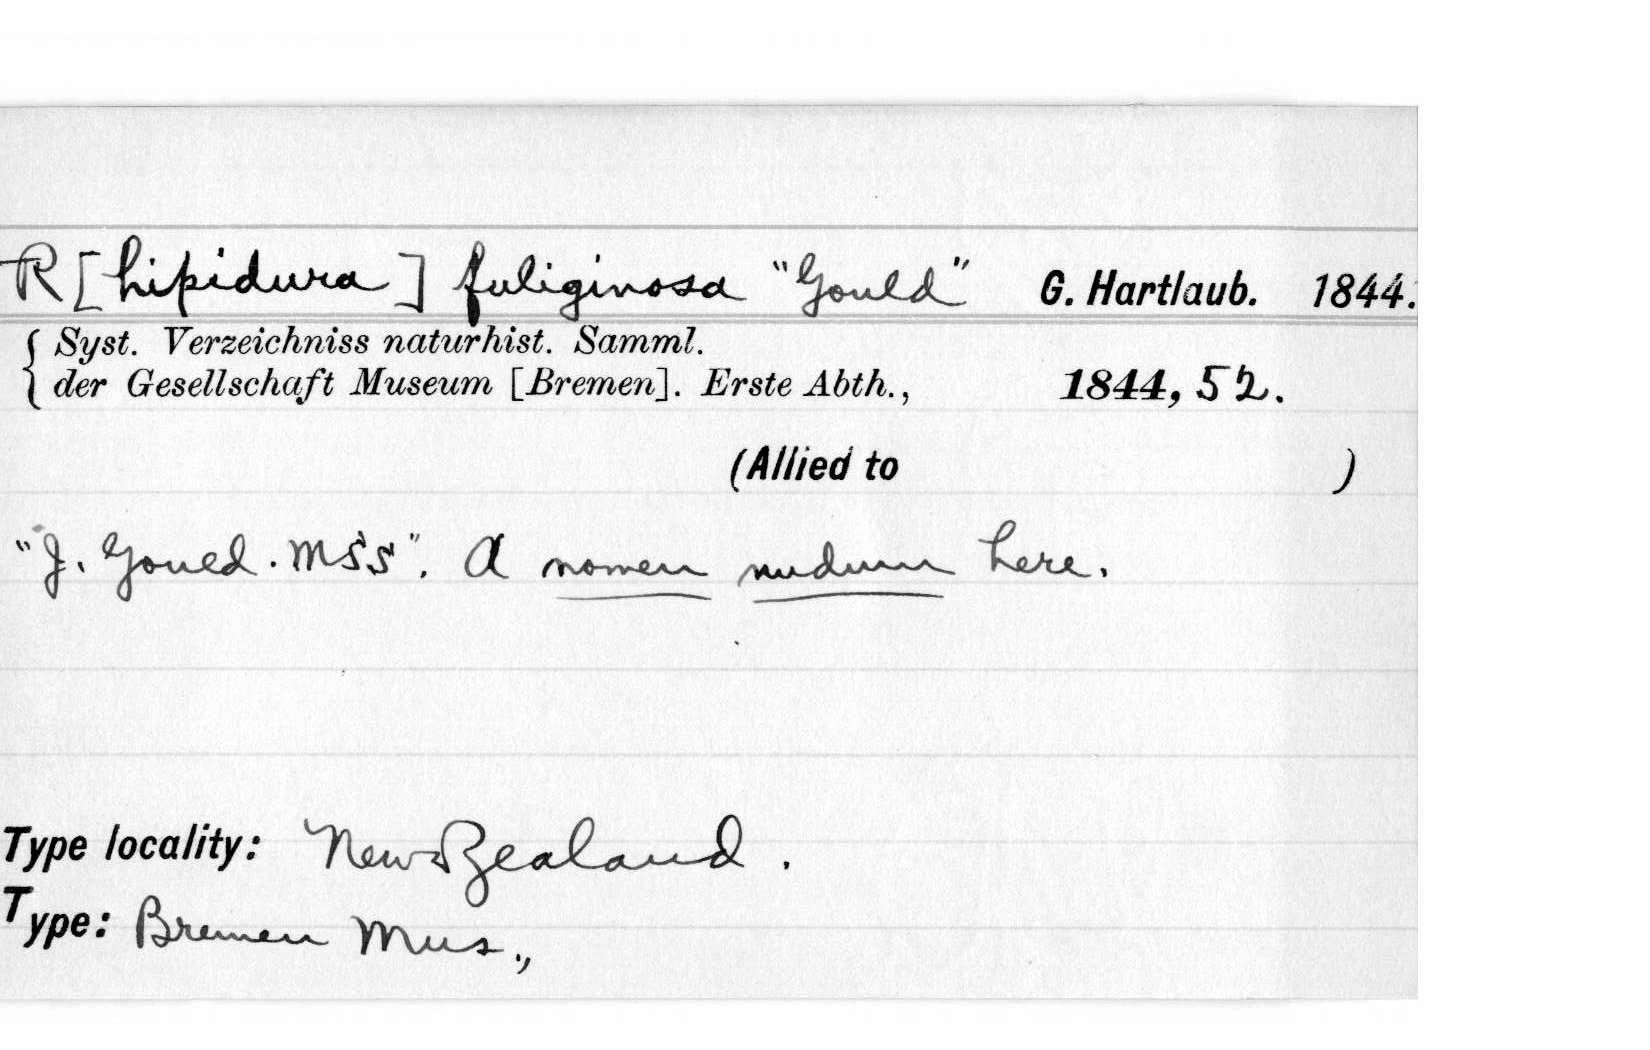 R[hipidura] fuliginosa "Gould" G. Hartlaub. 1844.
{ Syst. Verzeichniss naturhist. Samml.
der Gesellschaft Museum [Bremen]. Erste Abth., 1844, 52.
(Allied to )
"J. Gould. MSS". A nomen nudum here.
Type locality: New Zealand.
Type: Bremen Mus.,